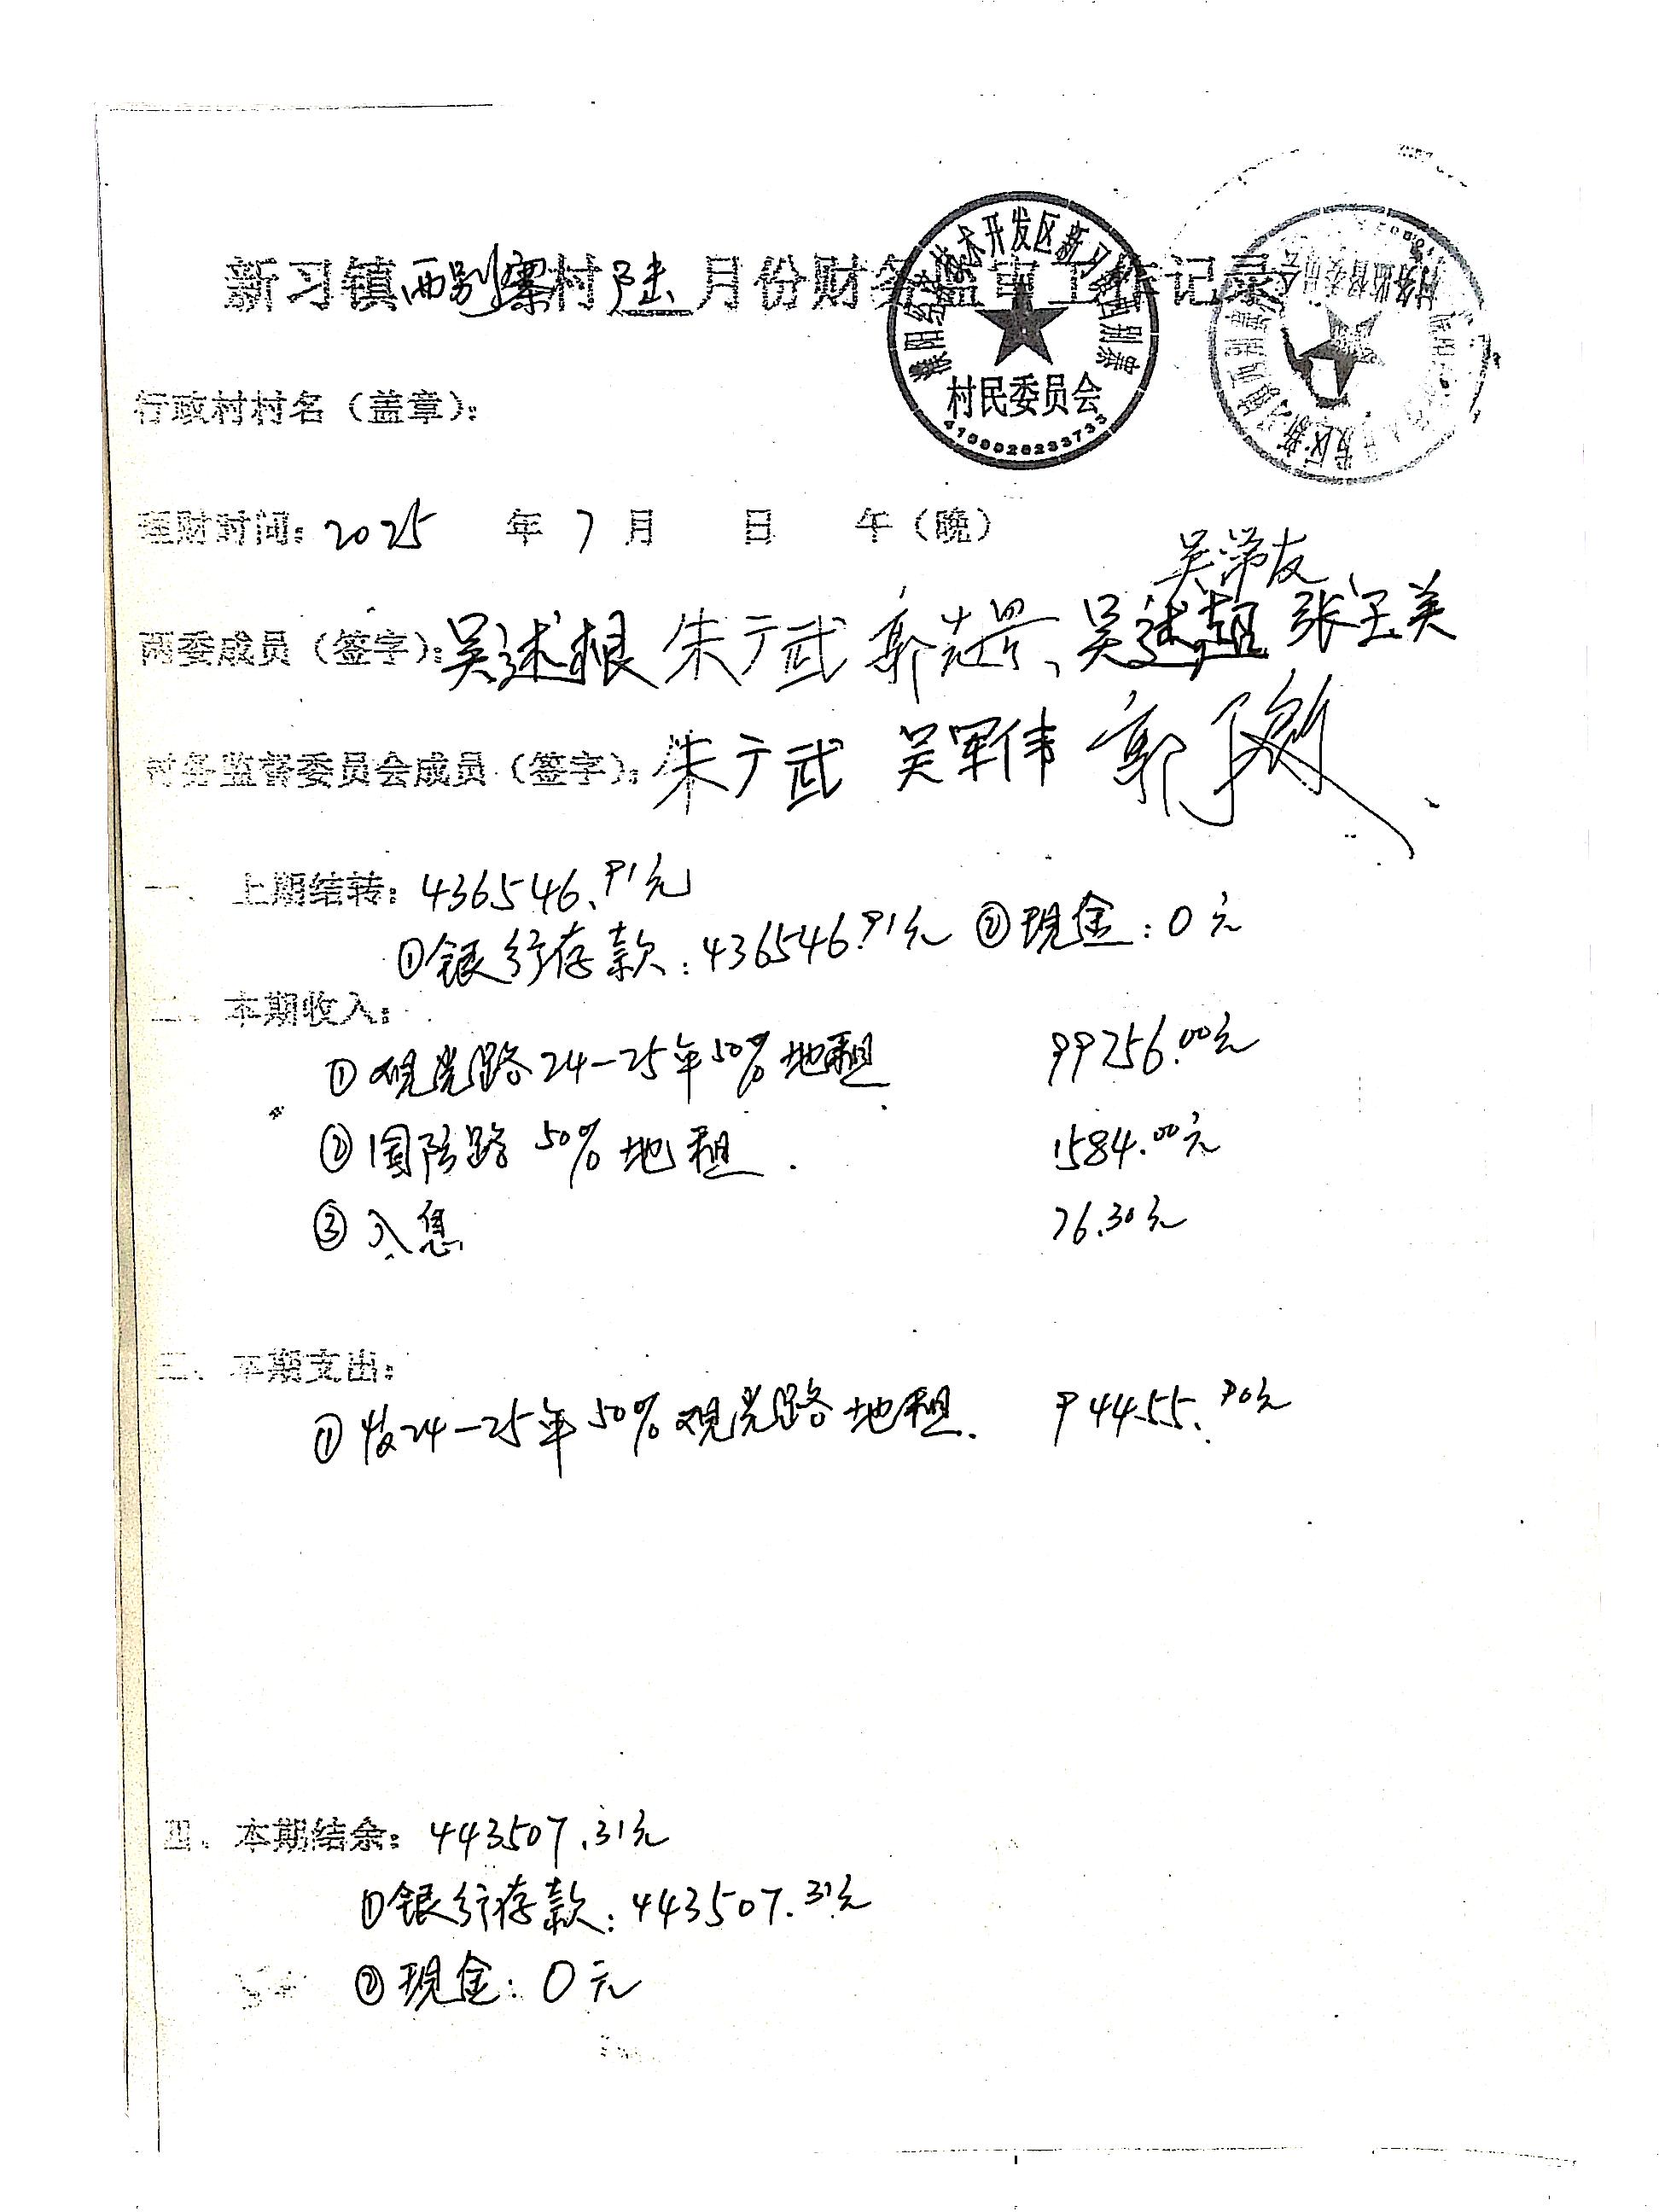 新习镇西别寨村陆月份财务监审工作记录
濮阳经济技术开发区新习镇西别寨
村民委员会
4109020233733
村务监督委员会
行政村村名（盖章）：
理财时间：2025 年 7 月 日 午（晚）
吴常友
两委成员（签字）：吴述根 朱广武 郭志景、吴述超 张玉美
村务监督委员会成员（签字）：朱广武 吴军伟 郭
一、上期结转：436546.91元
①银行存款：436546.91元 ②现金：0元
二、本期收入：
①观光路24-25年50%地租 99256.00元
②国防路50%地租. 1584.00元
③入息 76.30元
三、本期支出：
①发24-25年50%观光路地租. 94455.90元
四、本期结余：443507.31元
①银行存款：443507.31元
②现金：0元